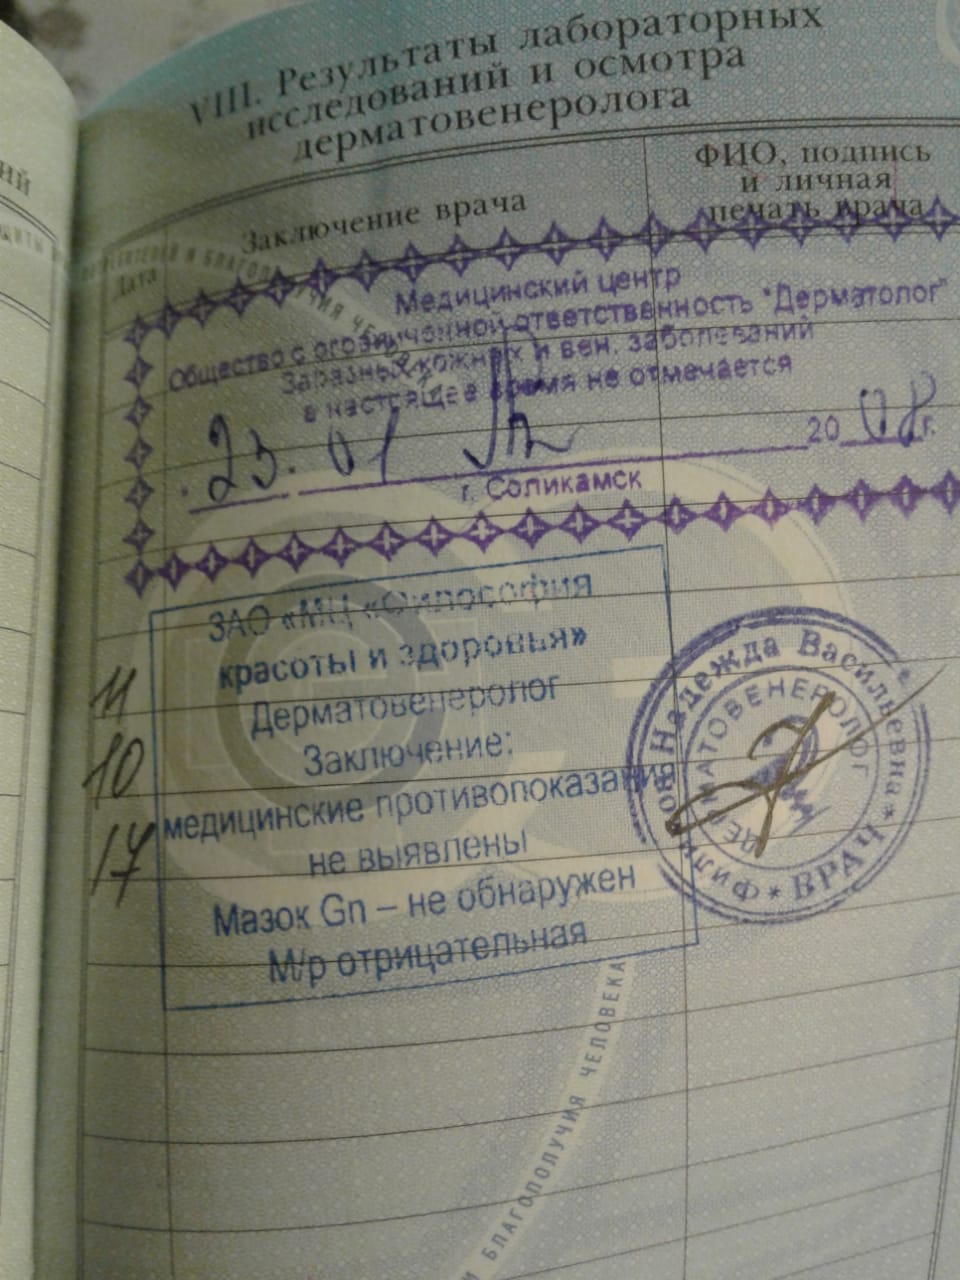 VIII. Результаты лабораторных
исследований и осмотра
дерматовенеролога
Дата
Заключение врача
ФИО, подпись
и личная
печать врача
Медицинский центр
Общество с ограниченной ответственность "Дерматолог"
Заразных кожных и вен. заболеваний
в настоящее время не отмечается
23. 01 2008г.
г. Соликамск
ЗАО «МЦ «Философия
красоты и здоровья»
Дерматовенеролог
Заключение:
медицинские противопоказания
не выявлены
Мазок Gn – не обнаружен
М/р отрицательная
11
10
17
Надежда Васильевна
ВРАЧ
И БЛАГОПОЛУЧИЯ ЧЕЛОВЕКА